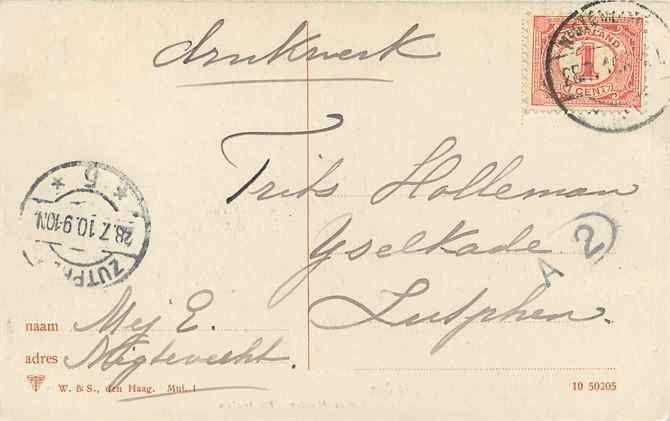 drukwerk
NEDERLAND
1
CENT
5
28.7.10.9-10N
ZUTPH
Frits Holleman
Yselkade
Zutphen.
A 2
naam Mej E.
adres Nigtevecht.
W. & S., den Haag. Mui. 1
10 50205